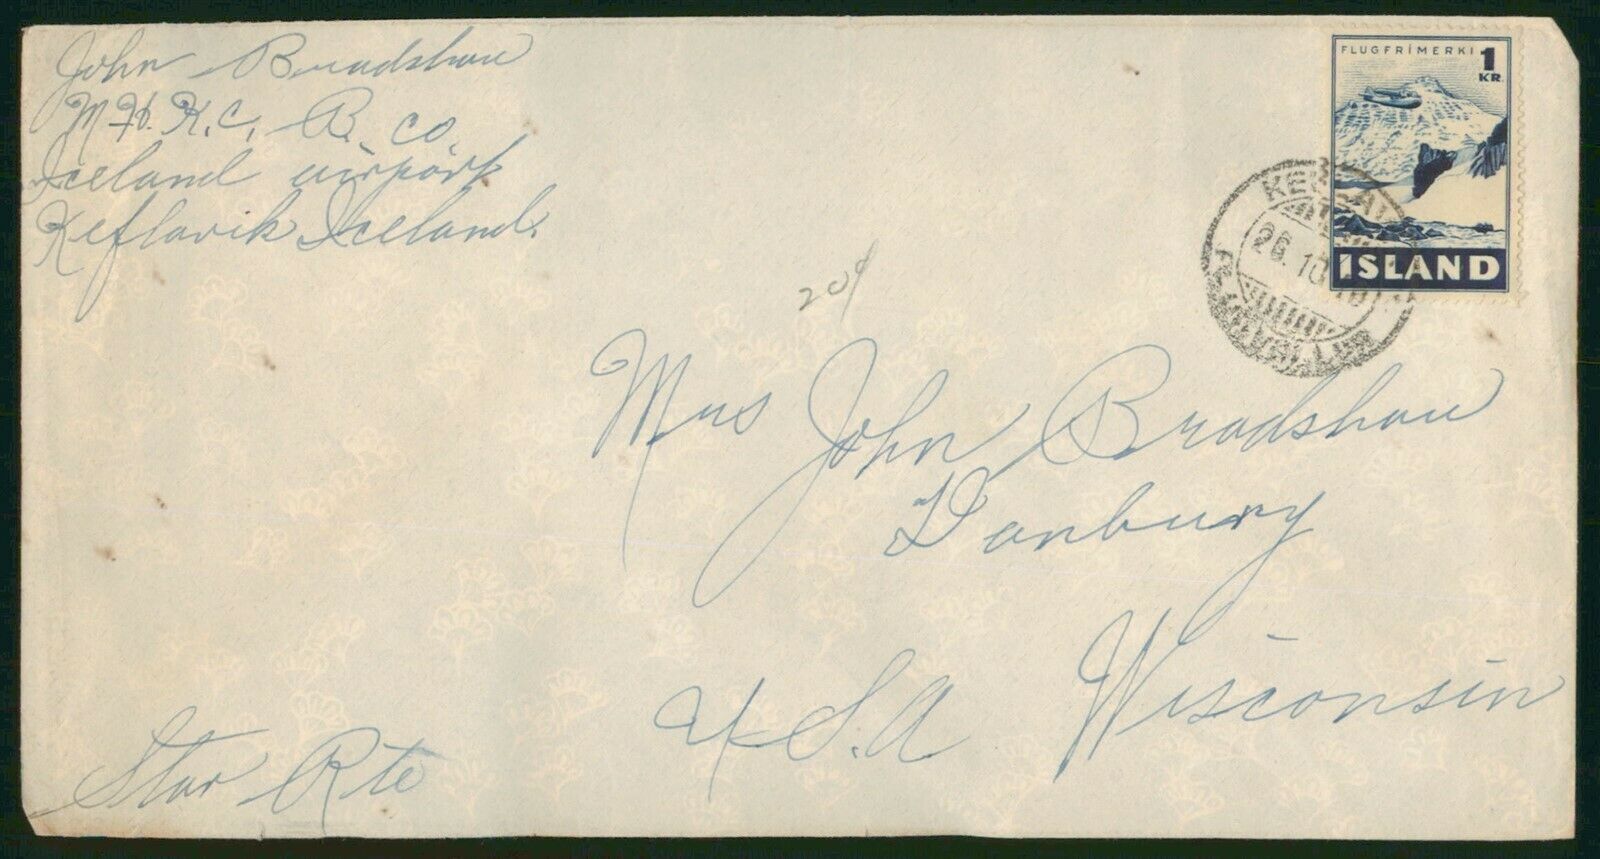 John Bradshaw
M.H. K. C. B. Co.
Iceland airport
Keflavik Iceland.
FLUGFRÍMERKI 1
KR.
ÍSLAND
26.10
20¢
Mrs John Bradshaw
Danbury
Wisconsin
U.S.A
Star Rte